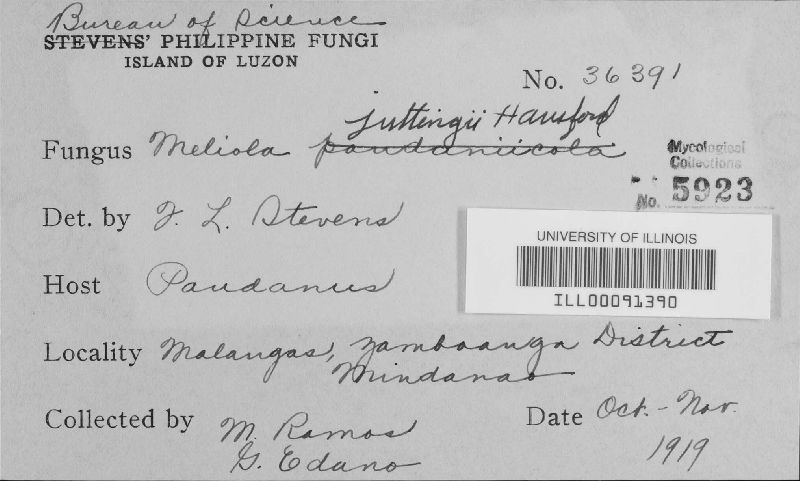 Bureau of Science
STEVENS' PHILIPPINE FUNGI
ISLAND OF LUZON
No. 36391
Juttingii Hansford
Fungus Meliola pandaniicola
Mycological
Collections
No. 5923
Det. by F. L. Stevens
UNIVERSITY OF ILLINOIS
ILL00091390
Host Pandanus
Locality Malangas, Zamboanga District
Mindanao
Collected by M. Ramos
G. Edano
Date Oct. - Nov.
1919